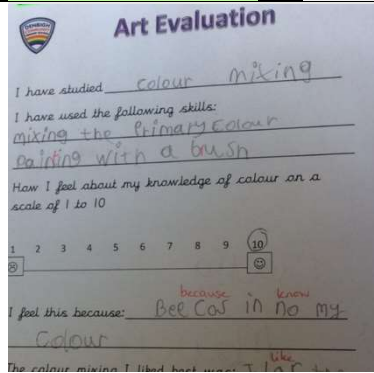 Art Evaluation
I have studied colour mixing
I have used the following skills:
mixing the Primary colour
painting with a brush
How I feel about my knowledge of colour on a
scale of 1 to 10
1 2 3 4 5 6 7 8 9 10
because know
I feel this because: BeeCos in no my
Colour
like
The colour mixing I liked best was: I